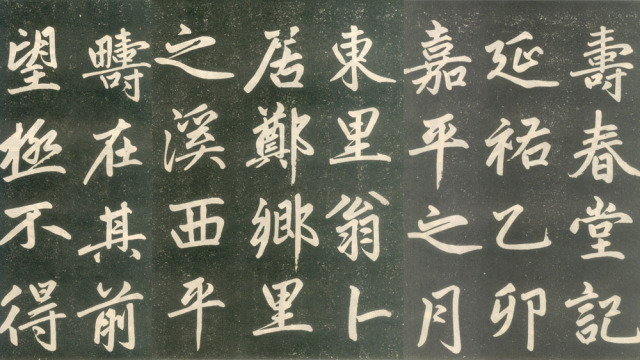 壽春堂記
延祐乙卯
嘉平之月
東里翁卜
居鄭鄉里
之溪西平
疇在其前
望極不得